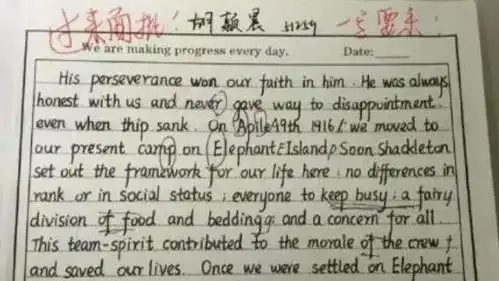 过来面批! 胡颖晨 51259 一定要来!
We are making progress every day. Date:
His perseverance won our faith in him. He was always
honest with us and never gave way to disappointment.
even when thip sank. On Apile 9th 1916, we moved to
our present camp on Elephant Island, Soon Shackleton
set out the framework for our life here: no differences in
rank or in social status; everyone to keep busy; a fairy
division of food and bedding; and a concern for all.
This team-spirit contributed to the morale of the crew
and saved our lives. Once we were settled on Elephant